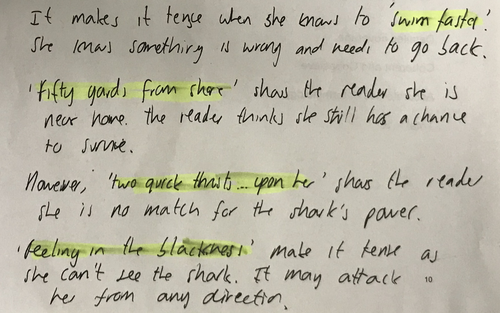 It makes it tense when she knows to 'swim faster.'
She knows something is wrong and needs to go back.
'Fifty yards from shore' shows the reader she is
near home. The reader thinks she still has a chance
to survive.
However, 'two quick thrusts... upon her' shows the reader
she is no match for the shark's power.
'feeling in the blackness' make it tense as
she can't see the shark. It may attack 10
her from any direction.